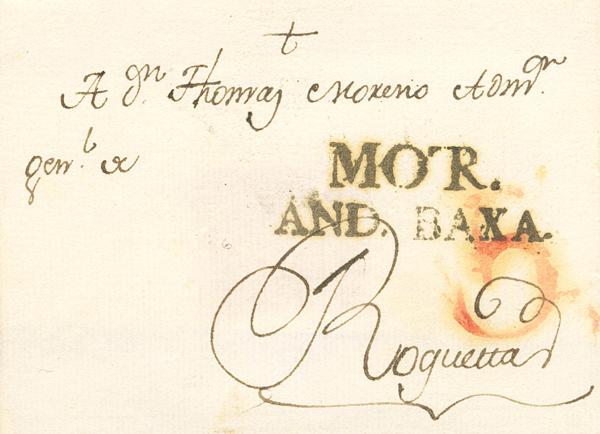 A dn. Thomas Moreno Admr.
genl. de
MOR.
AND. BAXA.
Roquetta